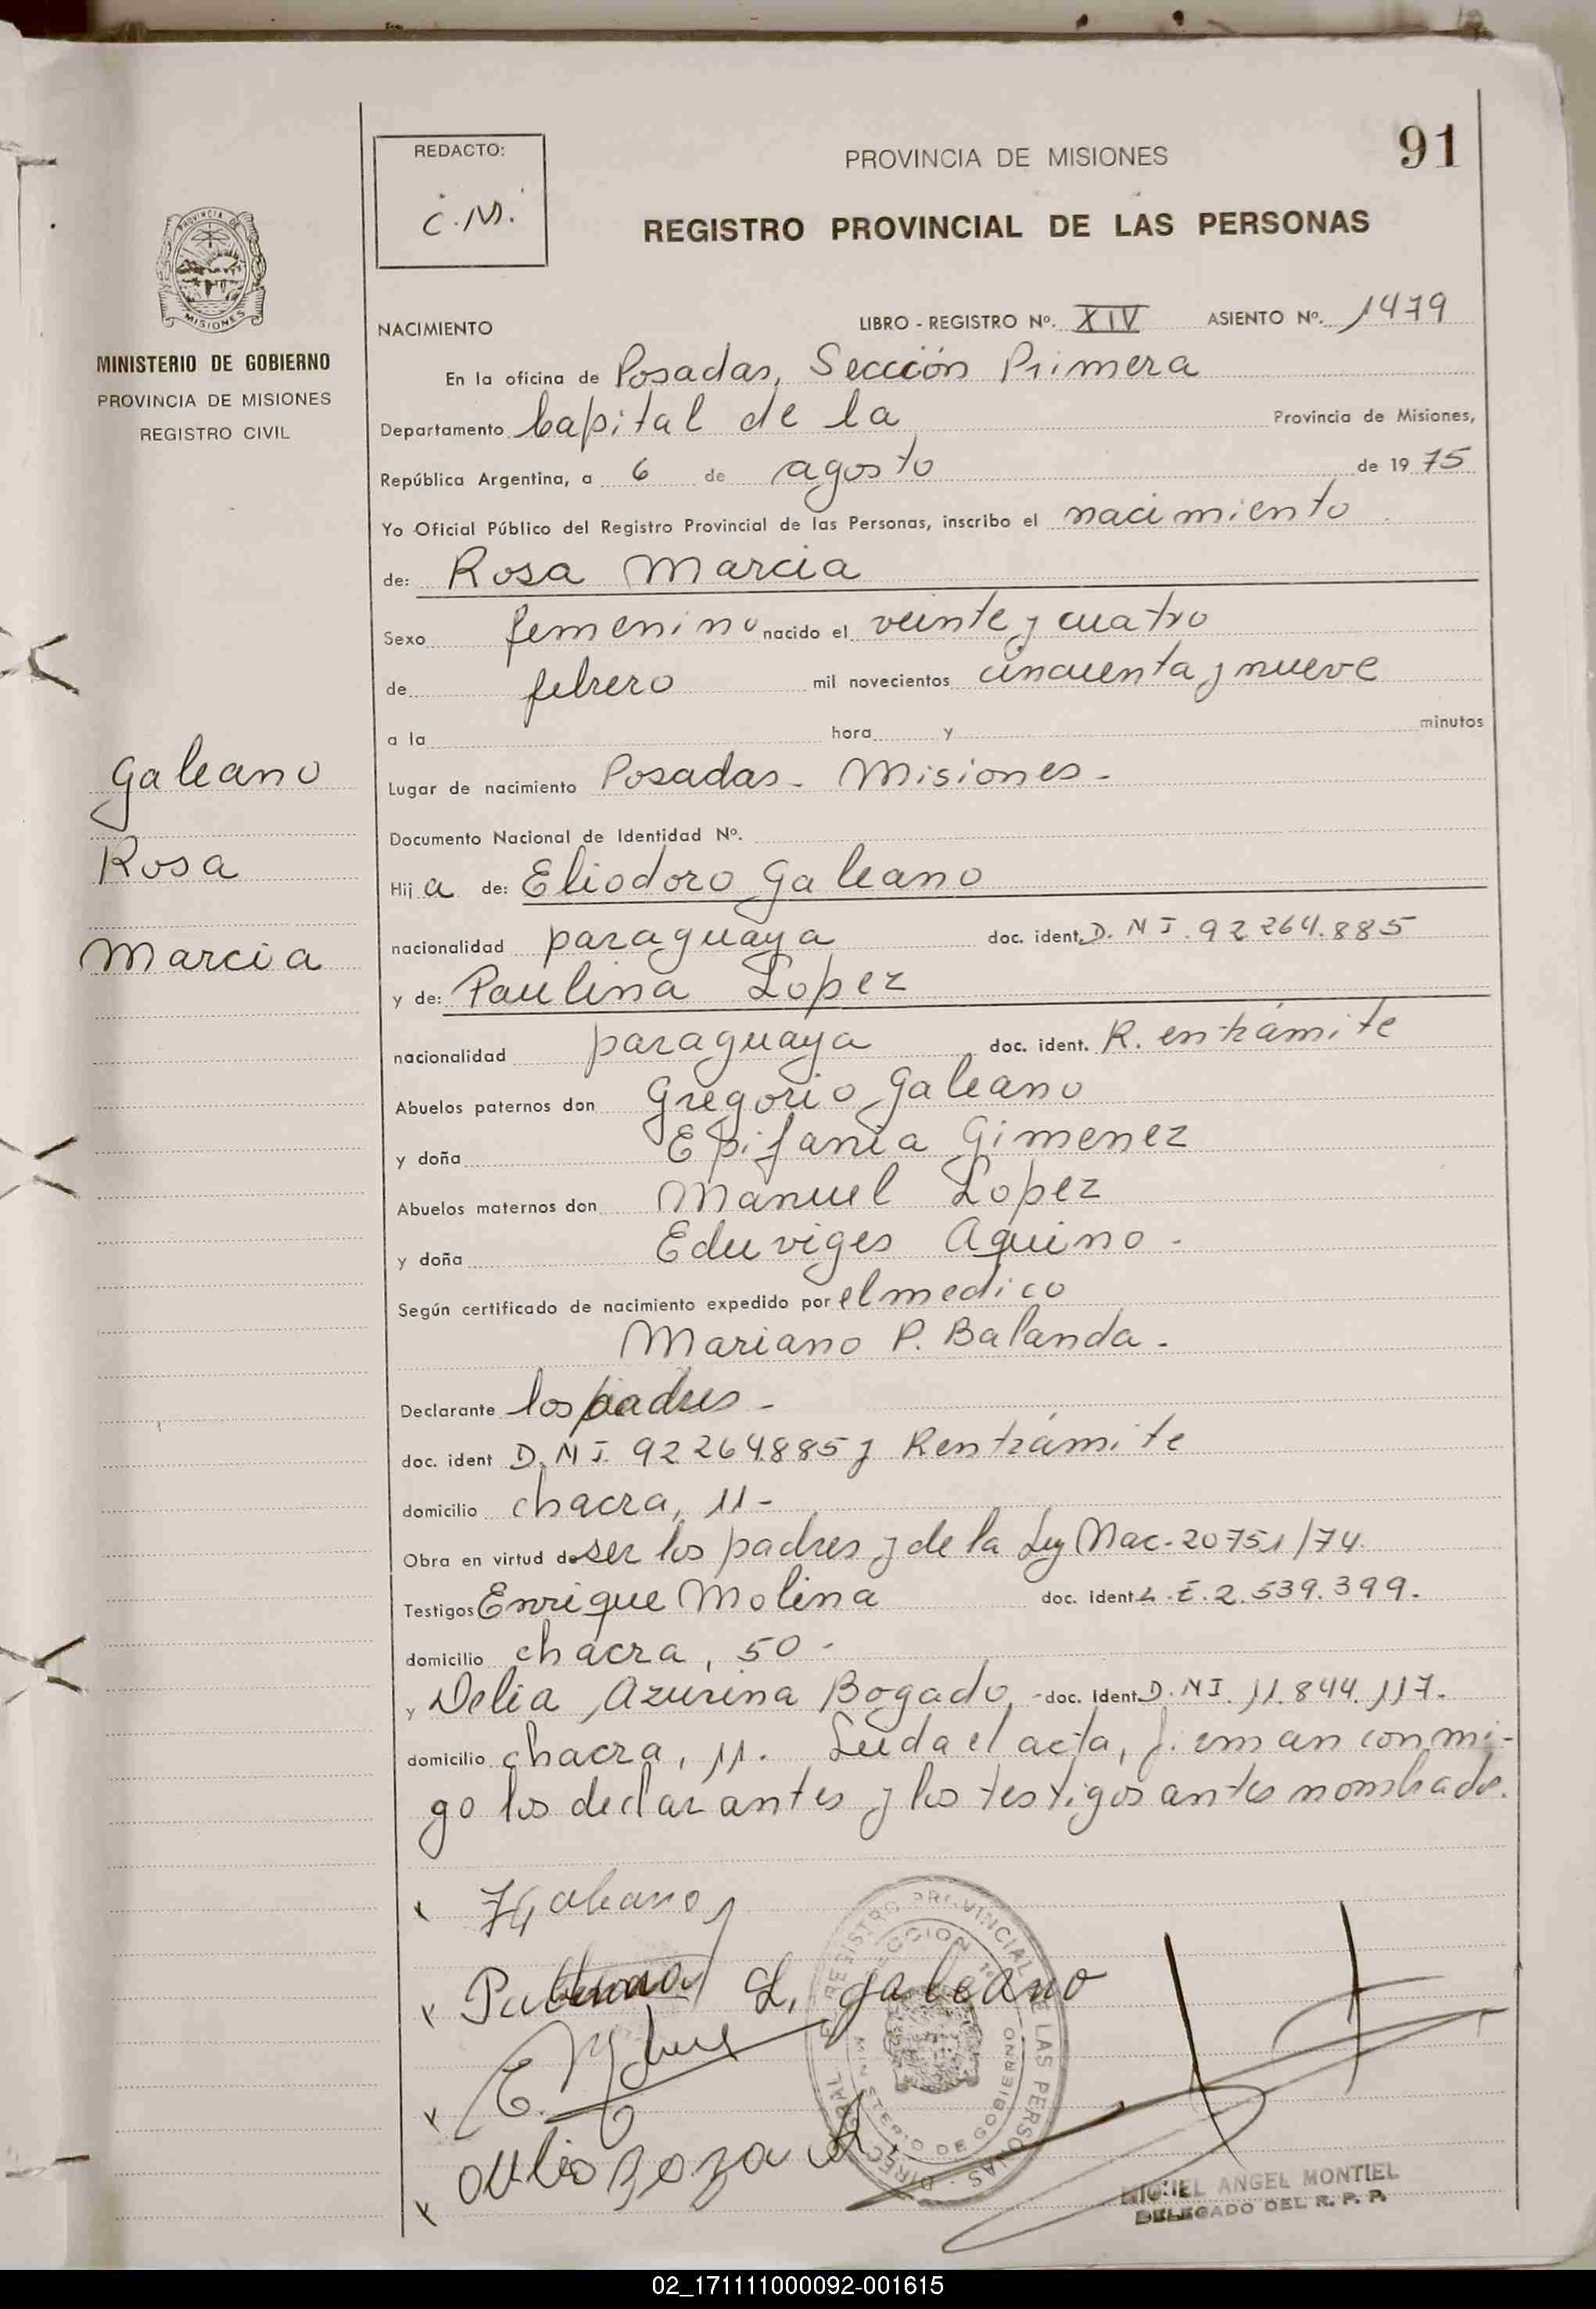 91
REDACTO:
C.M.
PROVINCIA DE MISIONES
REGISTRO PROVINCIAL DE LAS PERSONAS
PROVINCIA DE
MISIONES
MINISTERIO DE GOBIERNO
PROVINCIA DE MISIONES
REGISTRO CIVIL
Galeano
Rosa
Marcia
NACIMIENTO LIBRO - REGISTRO Nº. XIV ASIENTO Nº. 1479
En la oficina de Posadas, Sección Primera
Departamento Capital de la Provincia de Misiones,
República Argentina, a 6 de agosto de 1975
Yo Oficial Público del Registro Provincial de las Personas, inscribo el nacimiento
de: Rosa Marcia
Sexo femenino nacido el veinte y cuatro
de febrero mil novecientos cincuenta y nueve
a la hora y minutos
Lugar de nacimiento Posadas - Misiones -
Documento Nacional de Identidad Nº.
Hija de: Eliodoro Galeano
nacionalidad paraguaya doc. ident. D.N I. 92 264.885
y de: Paulina Lopez
nacionalidad paraguaya doc. ident. R. entrámite
Abuelos paternos don Gregorio Galeano
y doña Epifania Gimenez
Abuelos maternos don Manuel Lopez
y doña Eduviges Aquino -
Según certificado de nacimiento expedido por el medico
Mariano P. Balanda -
Declarante los padres -
doc. ident D.N I. 92 264.885 y R entrámite
domicilio chacra, 11 -
Obra en virtud de ser los padres y de la Ley Nac. 20751/74.
Testigos Enrique Molina doc. ident L.E. 2.539.399.
domicilio chacra, 50 -
y Delia Azurina Bogado, - doc. Ident. D.N I. 11.844.117.
domicilio chacra, 11. Leida el acta, firman conmi-
go los declarantes y los testigos antes nombrados.
L. galeano
DIRECC REGISTRO PROVINCIAL DE LAS PERSONAS
SECCION 1ª
MINISTERIO DE GOBIERNO
MIGUEL ANGEL MONTIEL
DELEGADO DEL R. P. P.
02_171111000092-001615